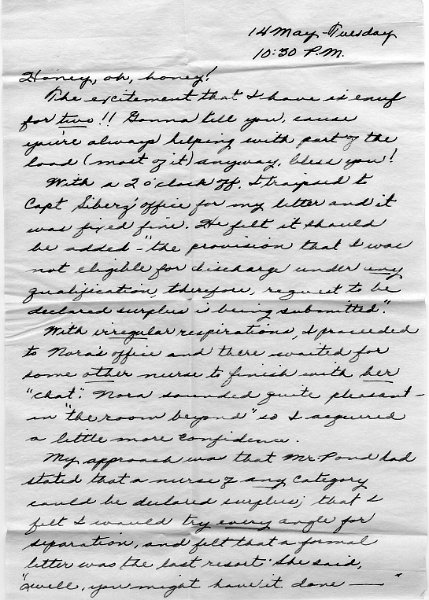 14 May, Tuesday
10:30 P.M.
Honey, oh, honey!
The excitement that I have is enuf
for two!! Gonna tell you, cause
you're always helping with part of the
load (most of it) anyway, bless you!
With a 2 o'clock off, I traipsed to
Capt Siberg' office for my letter and it
was fixed fine. He felt it should
be added - "the provision that I was
not eligible for discharge under any
qualification, therefore, request to be
declared surplus is being submitted".
With irregular respirations, I proceeded
to Nora's office and there waited for
some other nurse to finish with her
"chat". Nora sounded quite pleasant -
in "the room beyond" so I acquired
a little more confidence.
My approach was that Mr. Pond had
stated that a nurse of any category
could be declared surplus; that I
felt I would try every angle for
separation, and felt that a formal
letter was the last resort. She said,
"well, you might have it done —— "